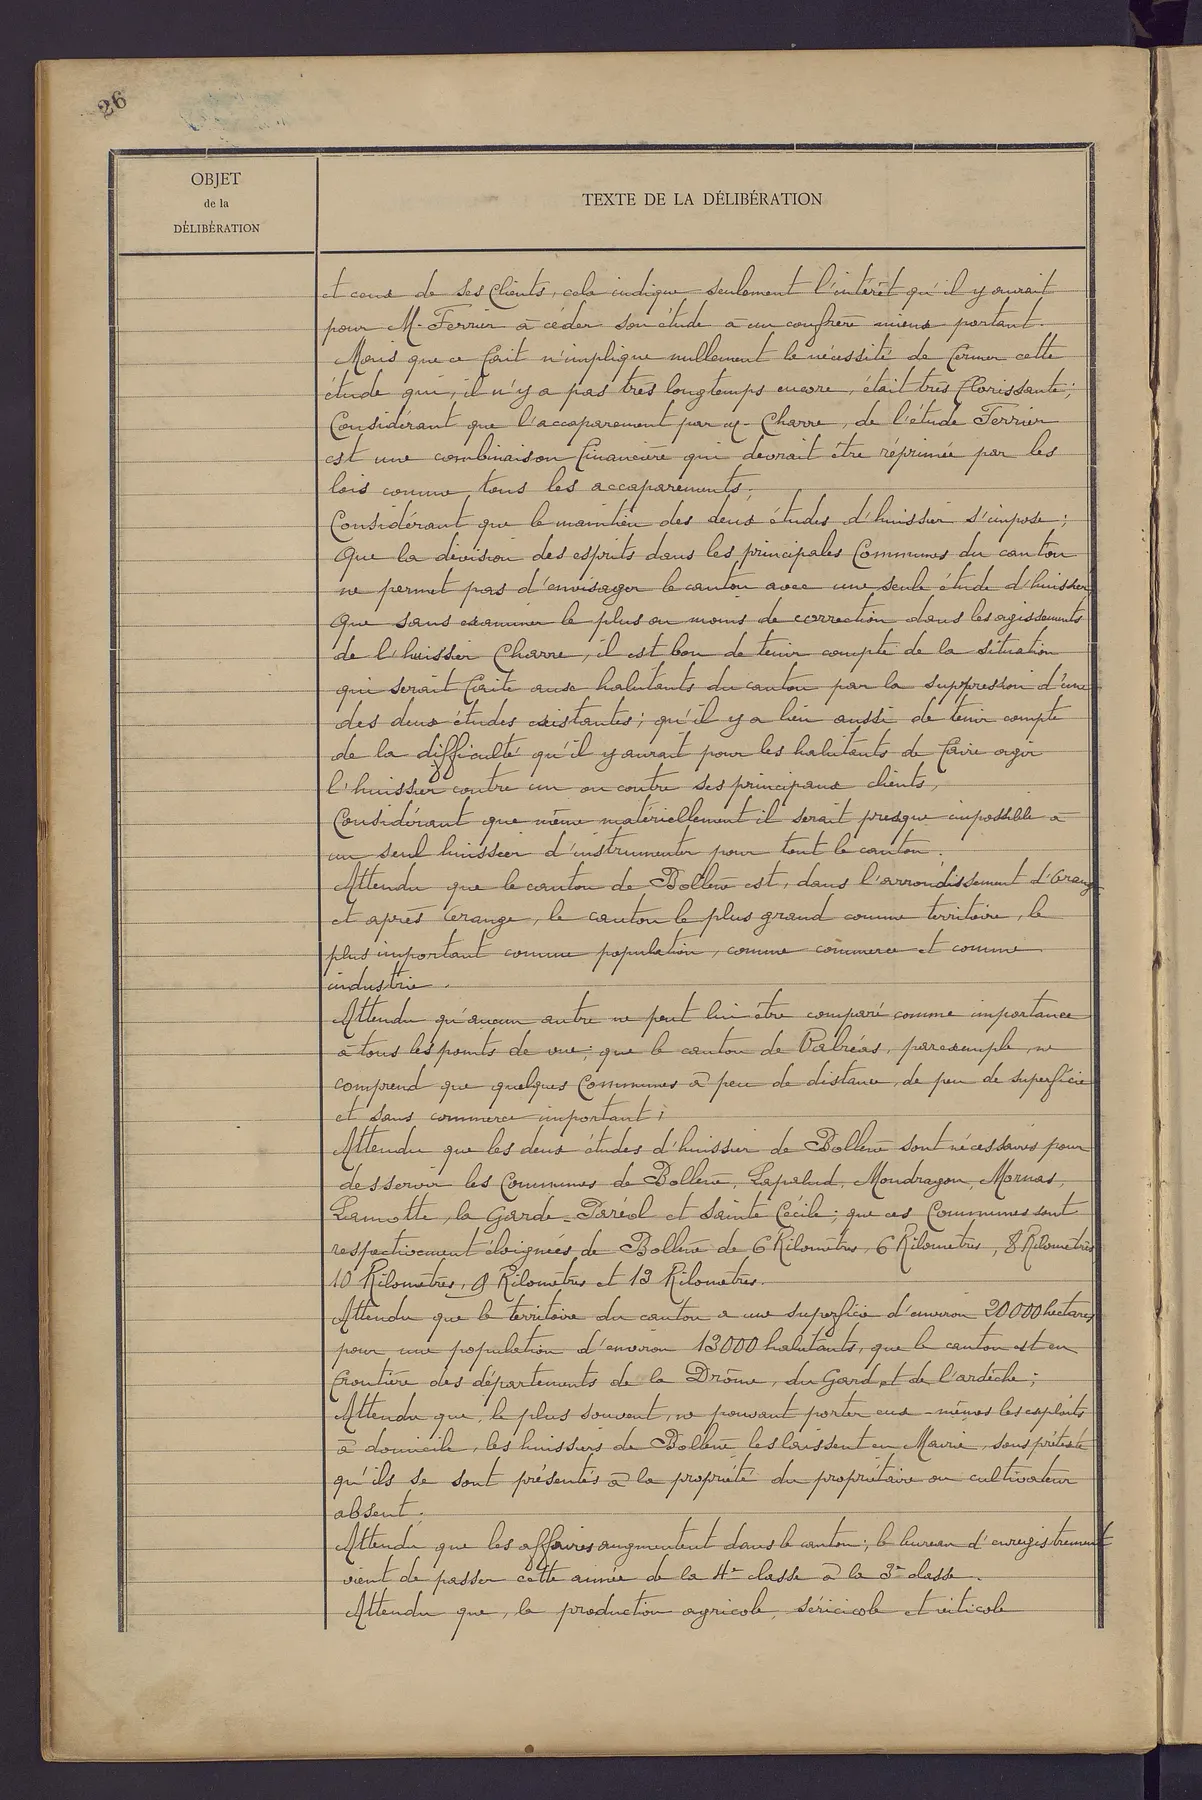 26
OBJET
de la
DÉLIBÉRATION
TEXTE DE LA DÉLIBÉRATION
et ceux de ses Clients, cela indique seulement l'intérêt qu'il y aurait
pour M. Ferrier à céder son étude à un confrère mieux portant.
Mais que ce fait n'implique nullement la nécessité de fermer cette
étude qui, il n'y a pas très longtemps encore, était très florissante;
Considérant que l'accaparement par M. Charre, de l'étude Ferrier
est une combinaison financière qui devrait être réprimée par les
lois comme tous les accaparements;
Considérant que le maintien des deux études d'huissier s'impose;
Que la division des esprits dans les principales Communes du canton
ne permet pas d'envisager le canton avec une seule étude d'huissier
Que sans examiner le plus ou moins de correction dans les agissements
de l'huissier Charre, il est bon de tenir compte de la situation
qui serait faite aux habitants du canton par la suppression d'une
des deux études existantes; qu'il y a lieu aussi de tenir compte
de la difficulté qu'il y aurait pour les habitants de faire agir
l'huissier contre un ou contre ses principaux clients,
Considérant que même matériellement il serait presque impossible à
un seul huissier d'instrumenter pour tout le canton.
Attendu que le canton de Bollène est, dans l'arrondissement d'Orange
et après Orange, le canton le plus grand comme territoire, le
plus important comme population, comme commerce et comme
industrie.
Attendu qu'aucun autre ne peut lui être comparé comme importance
à tous les points de vue; que le canton de Valréas, par exemple, ne
comprend que quelques Communes à peu de distance, de peu de superficie
et sans commerce important;
Attendu que les deux études d'huissier de Bollène sont nécessaires pour
desservir les Communes de Bollène, Lapalud, Mondragon, Mornas,
Lamotte, la Garde-Paréol et Sainte Cécile; que ces Communes sont
respectivement éloignées de Bollène de 6 Kilomètres, 6 Kilomètres, 8 Kilomètres
10 Kilomètres, 9 Kilomètres et 13 Kilomètres.
Attendu que le territoire du canton a une superficie d'environ 20000 hectares
pour une population d'environ 13000 habitants, que le canton est en
frontière des départements de la Drôme, du Gard et de l'ardèche;
Attendu que, le plus souvent, ne pouvant porter eux-mêmes les exploits
à domicile, les huissiers de Bollène les laissent en Mairie, sous prétexte
qu'ils se sont présentés à la propriété du propriétaire ou cultivateur
absent;
Attendu que les affaires augmentent dans le canton; le bureau d'enregistrement
vient de passer cette année de la 4e classe à la 3e classe.
Attendu que, la production agricole, séricicole et viticole